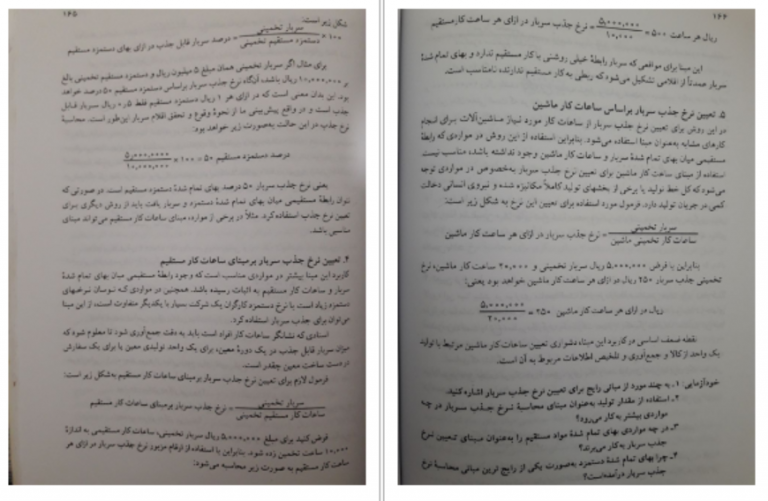 ۱۶۵
شکل زیر است:
۱۰۰ × سربار تخمینی / دستمزد مستقیم تخمینی = درصد سربار قابل جذب در ازای بهای دستمزد مستقیم
برای مثال اگر سربار تخمینی همان مبلغ ۵ میلیون ریال و دستمزد مستقیم تخمینی بالغ
بر ۱۰,۰۰۰,۰۰۰ ریال باشد، آنگاه نرخ جذب سربار براساس دستمزد مستقیم ۵۰ درصد خواهد
بود. این بدان معنی است که در ازای هر ۱ ریال دستمزد مستقیم فقط ۰٫۵ ریال سربار قابل
جذب است و در واقع پیش‌بینی ما از نحوهٔ وقوع و تحقق اقلام سربار این‌طور است. محاسبهٔ
نرخ جذب در این حالت به‌صورت زیر خواهد بود:
درصد دستمزد مستقیم ۵۰ = ۱۰۰ × ۵,۰۰۰,۰۰۰ / ۱۰,۰۰۰,۰۰۰
یعنی نرخ جذب سربار ۵۰ درصد بهای تمام شدهٔ دستمزد مستقیم است. در صورتی که
نتوان رابطهٔ مستقیمی میان بهای تمام شدهٔ دستمزد و سربار یافت باید از روش دیگری برای
تعیین نرخ جذب استفاده کرد. مثلاً در برخی از موارد، مبنای ساعات کار مستقیم می‌تواند مبنای
مناسبی باشد.
۴. تعیین نرخ جذب سربار برمبنای ساعات کار مستقیم
کاربرد این مبنا بیشتر در مواردی مناسب است که وجود رابطهٔ مستقیمی میان بهای تمام شدهٔ
سربار و ساعات کار مستقیم به اثبات رسیده باشد. همچنین در مواردی که نوسان نرخهای
دستمزد زیاد است یا نرخ دستمزد کارگران یک شرکت بسیار با یکدیگر متفاوت است، از این مبنا
می‌توان برای جذب سربار استفاده کرد.
اسنادی که نشانگر ساعات کار افراد است باید به دقت جمع‌آوری شود تا معلوم شود که
میزان سربار قابل جذب در یک دورهٔ معین، برای یک واحد تولیدی معین یا برای یک سفارش
در دست ساخت معین چقدر است.
فرمول لازم برای تعیین نرخ جذب سربار برمبنای ساعات کار مستقیم به‌شکل زیر است:
سربار تخمینی / ساعات کار مستقیم تخمینی = نرخ جذب سربار برمبنای ساعات کار مستقیم
فرض کنید برای مبلغ ۵,۰۰۰,۰۰۰ ریال سربار تخمینی، ساعات کار مستقیم به اندازهٔ
۱۰,۰۰۰ ساعت تخمین زده شود. بنابراین با استفاده از ارقام مزبور نرخ جذب سربار در ازای هر
ساعت کار مستقیم به صورت زیر محاسبه می‌شود:
۱۶۶
ریال هر ساعت ۵۰۰ = ۵,۰۰۰,۰۰۰ / ۱۰,۰۰۰ = نرخ جذب سربار در ازای هر ساعت کار مستقیم
این مبنا برای مواقعی که سربار رابطهٔ خیلی روشنی با کار مستقیم ندارد و بهای تمام شدهٔ
سربار عمدتاً از اقلامی تشکیل می‌شود که ربطی به کار مستقیم ندارند نامناسب است.
۵. تعیین نرخ جذب سربار براساس ساعات کار ماشین
در این روش برای تعیین نرخ جذب سربار از ساعات کار مورد نیاز ماشین‌آلات برای انجام
کارهای مشابه به‌عنوان مبنا استفاده می‌شود. بنابراین استفاده از این روش در مواردی که رابطهٔ
مستقیمی میان بهای تمام شدهٔ سربار و ساعات کار ماشین وجود نداشته باشد، مناسب نیست.
استفاده از مبنای ساعت کار ماشین برای تعیین نرخ جذب سربار به‌خصوص در مواردی توجیه
می‌شود که کل خط تولید یا برخی از بخشهای تولید کاملاً مکانیزه شده و نیروی انسانی دخالت
کمی در جریان تولید دارد. فرمول مورد استفاده برای تعیین این نرخ به شکل زیر است:
سربار تخمینی / ساعات کار تخمینی ماشین = نرخ جذب سربار در ازای هر ساعت کار ماشین
بنابراین با فرض ۵,۰۰۰,۰۰۰ ریال سربار تخمینی و ۲۰,۰۰۰ ساعت کار ماشین، نرخ
تخمینی جذب سربار ۲۵۰ ریال در ازای هر ساعت کار ماشین خواهد بود یعنی:
ریال در ازای هر ساعت کار ماشین ۲۵۰ = ۵,۰۰۰,۰۰۰ / ۲۰,۰۰۰
نقطه ضعف اساسی در کاربرد این مبنا، دشواری تعیین ساعات کار ماشین مرتبط با تولید
یک واحد از کالا و جمع‌آوری و تلخیص اطلاعات مربوط به آن است.
خودآزمایی ۱. به چند مورد از مبانی رایج برای تعیین نرخ جذب سربار اشاره کنید.
۲. استفاده از مقدار تولید به‌عنوان مبنای محاسبهٔ نرخ جذب سربار در چه
مواردی بیشتر به‌کار می‌رود؟
۳. در چه مواردی بهای تمام شدهٔ مواد مستقیم را به‌عنوان مبنای تعیین نرخ
جذب سربار به‌کار می‌برند؟
۴. چرا بهای تمام شدهٔ دستمزد به‌صورت یکی از رایج ترین مبانی محاسبهٔ نرخ
جذب سربار درآمده‌است؟